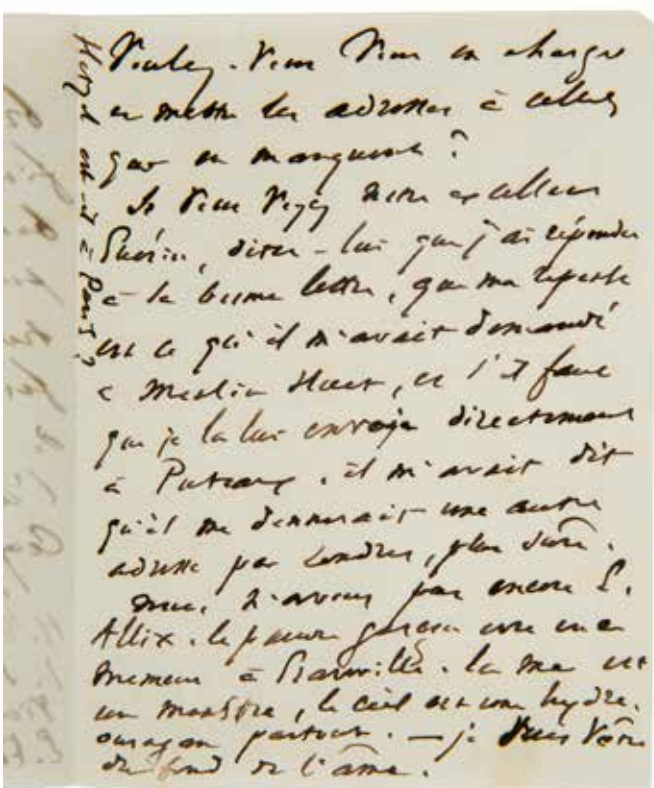 Voulez-vous vous en charger
et mettre les adresses à celles
qui en manquent ?
Si vous voyez notre excellent
Guérin, dites-lui que j'ai répondu
à sa bonne lettre, que ma réponse
est ce qu'il m'avait demandé
à Meslin Huet, et s'il faut
que je la lui envoie directement
à Puteaux. il m'avait dit
qu'il me donnerait une autre
adresse par Londres, plus sûre.
nous n'avons pas encore E.
Allix. le pauvre garçon est en ce
moment à Granville. la mer est
un monstre, le ciel est une hydre.
ouragan partout. — je suis vôtre
du fond de l'âme.
Hetzel est-il à Paris ?